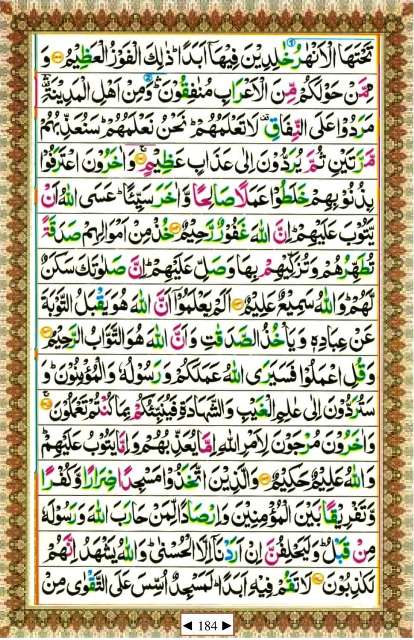 تَحْتَهَا الْاَنْهٰرُ خٰلِدِيْنَ فِيْهَاۤ اَبَدًا ؕ ذٰلِكَ الْفَوْزُ الْعَظِيْمُ وَ
مِمَّنْ حَوْلَكُمْ مِّنَ الْاَعْرَابِ مُنٰفِقُوْنَ ۛؕ وَمِنْ اَهْلِ الْمَدِيْنَةِ ۛ
مَرَدُوْا عَلَى النِّفَاقِ ۫ لَا تَعْلَمُهُمْ ؕ نَحْنُ نَعْلَمُهُمْ ؕ سَنُعَذِّبُهُمْ
مَّرَّتَيْنِ ثُمَّ يُرَدُّوْنَ اِلٰى عَذَابٍ عَظِيْمٍ وَاٰخَرُوْنَ اعْتَرَفُوْا
بِذُنُوْبِهِمْ خَلَطُوْا عَمَلًا صَالِحًا وَّاٰخَرَ سَيِّئًا ؕ عَسَى اللّٰهُ اَنْ
يَّتُوْبَ عَلَيْهِمْ ؕ اِنَّ اللّٰهَ غَفُوْرٌ رَّحِيْمٌ خُذْ مِنْ اَمْوَالِهِمْ صَدَقَةً
تُطَهِّرُهُمْ وَتُزَكِّيْهِمْ بِهَا وَصَلِّ عَلَيْهِمْ ؕ اِنَّ صَلٰوتَكَ سَكَنٌ
لَّهُمْ ؕ وَاللّٰهُ سَمِيْعٌ عَلِيْمٌ اَلَمْ يَعْلَمُوْۤا اَنَّ اللّٰهَ هُوَ يَقْبَلُ التَّوْبَةَ
عَنْ عِبَادِهٖ وَيَاْخُذُ الصَّدَقٰتِ وَاَنَّ اللّٰهَ هُوَ التَّوَّابُ الرَّحِيْمُ
وَقُلِ اعْمَلُوْا فَسَيَرَى اللّٰهُ عَمَلَكُمْ وَرَسُوْلُهٗ وَالْمُؤْمِنُوْنَ ؕ وَ
سَتُرَدُّوْنَ اِلٰى عٰلِمِ الْغَيْبِ وَالشَّهَادَةِ فَيُنَبِّئُكُمْ بِمَا كُنْتُمْ تَعْمَلُوْنَ
وَاٰخَرُوْنَ مُرْجَوْنَ لِاَمْرِ اللّٰهِ اِمَّا يُعَذِّبُهُمْ وَاِمَّا يَتُوْبُ عَلَيْهِمْ ؕ
وَاللّٰهُ عَلِيْمٌ حَكِيْمٌ وَالَّذِيْنَ اتَّخَذُوْا مَسْجِدًا ضِرَارًا وَّكُفْرًا
وَّتَفْرِيْقًۢا بَيْنَ الْمُؤْمِنِيْنَ وَاِرْصَادًا لِّمَنْ حَارَبَ اللّٰهَ وَرَسُوْلَهٗ
مِنْ قَبْلُ ؕ وَلَيَحْلِفُنَّ اِنْ اَرَدْنَاۤ اِلَّا الْحُسْنٰى ؕ وَاللّٰهُ يَشْهَدُ اِنَّهُمْ
لَكٰذِبُوْنَ لَا تَقُمْ فِيْهِ اَبَدًا ؕ لَمَسْجِدٌ اُسِّسَ عَلَى التَّقْوٰى مِنْ
◄ 184 ►